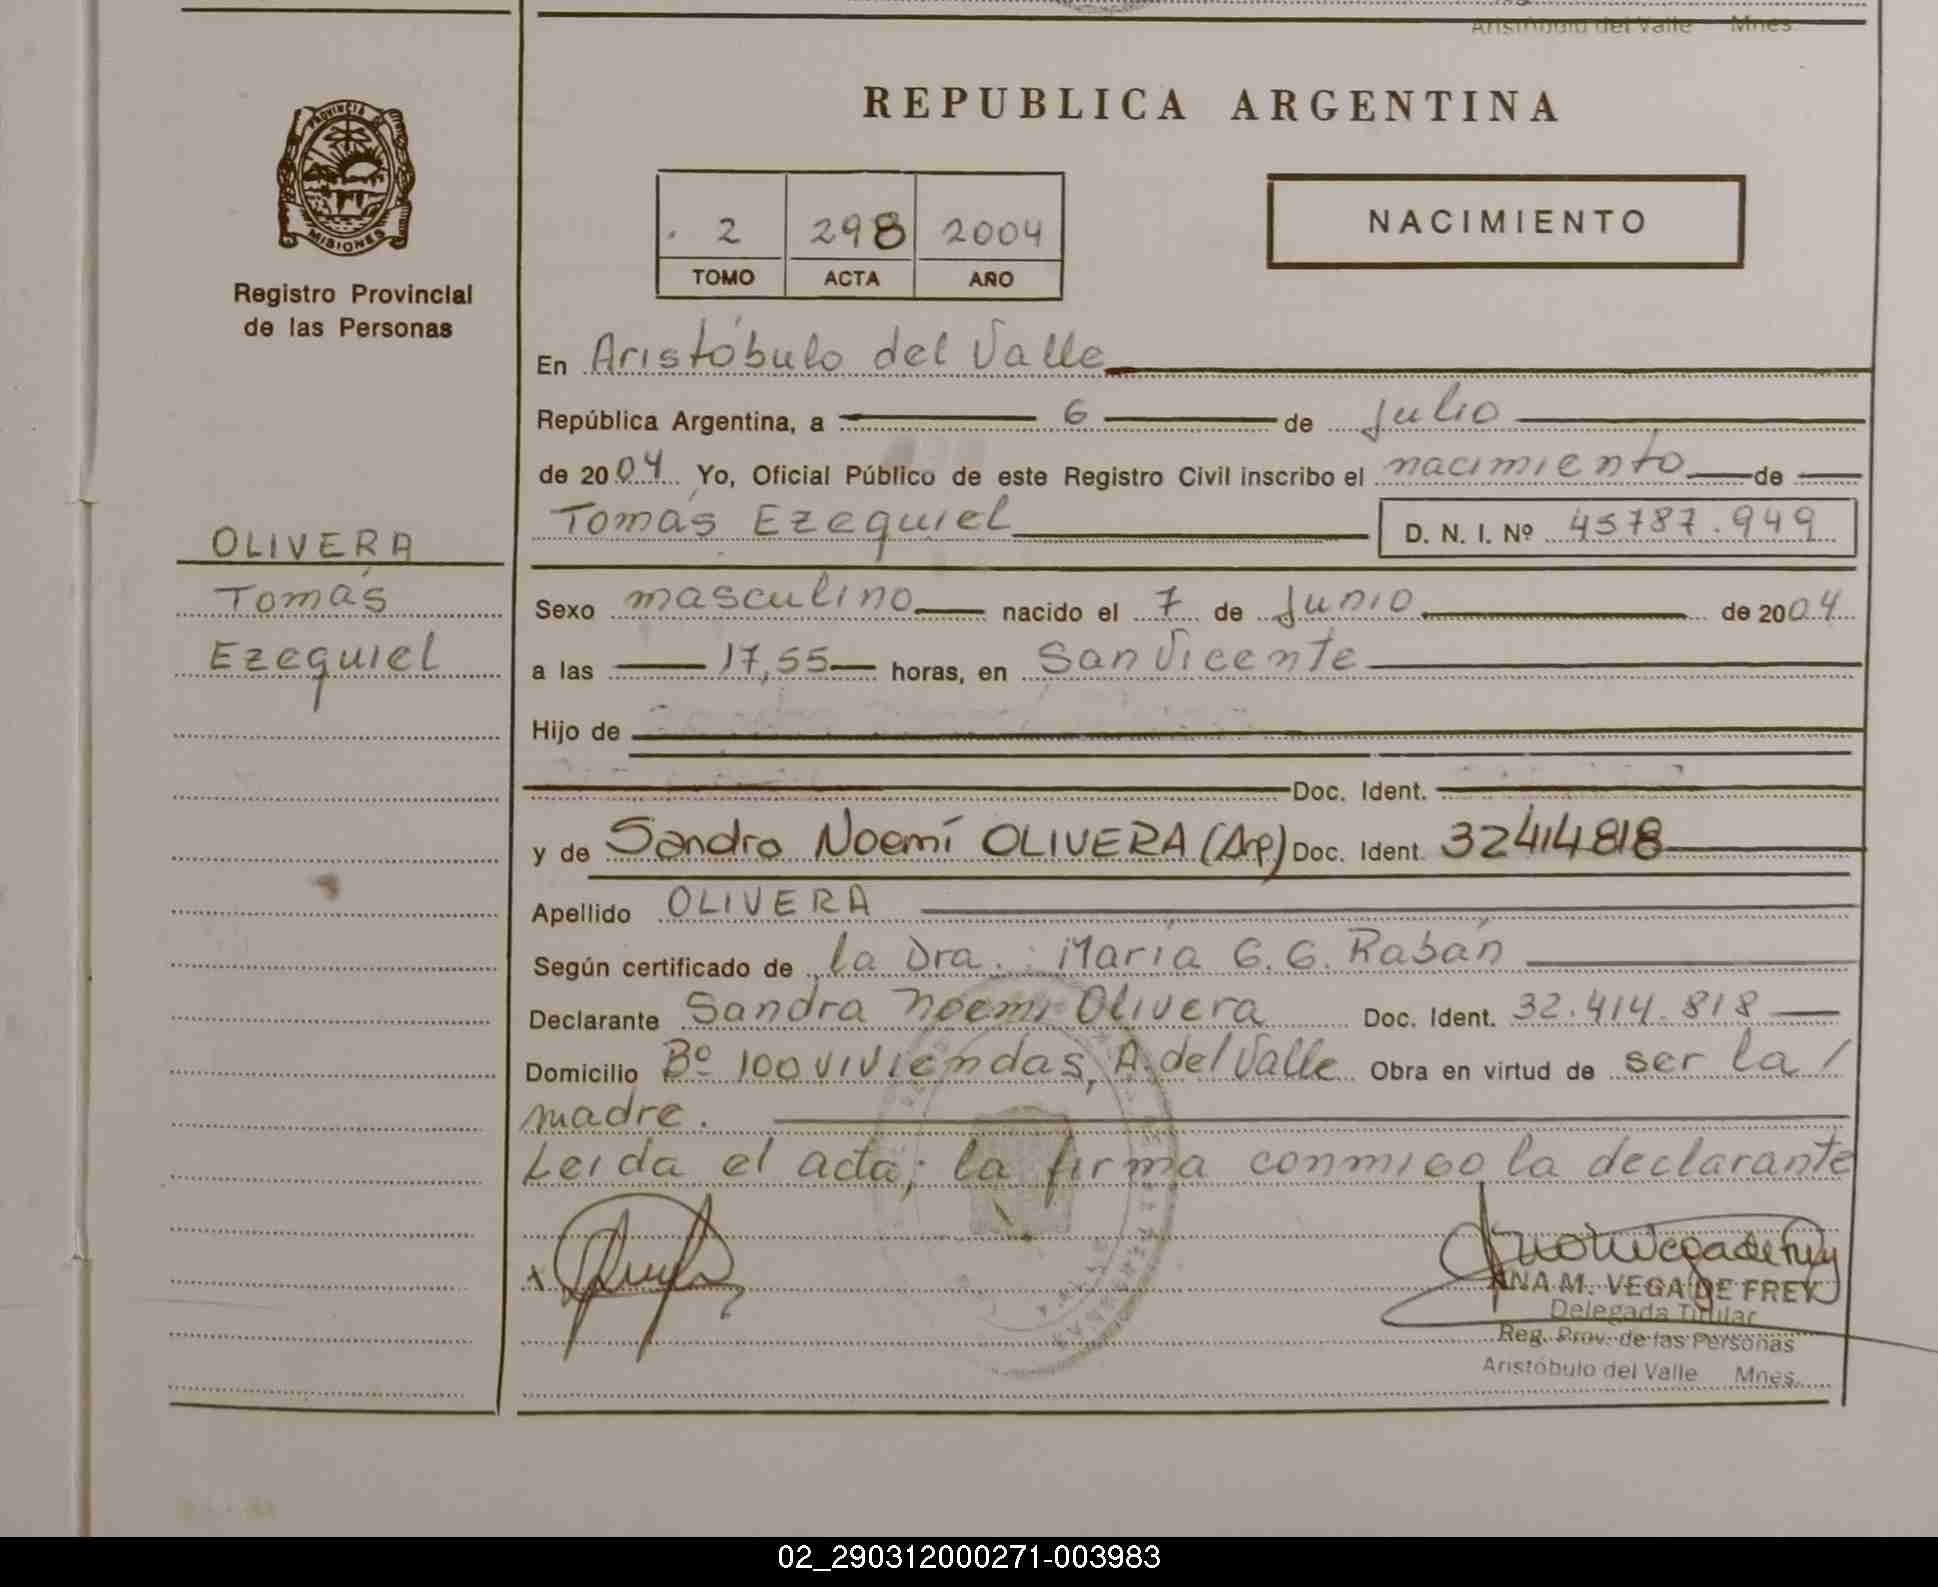 Aristóbulo del Valle Mnes.
REPUBLICA ARGENTINA
PROVINCIA DE
MISIONES
Registro Provincial
de las Personas
2 298 2004
TOMO ACTA AÑO
NACIMIENTO
En Aristóbulo del Valle
República Argentina, a 6 de Julio
de 2004 Yo, Oficial Público de este Registro Civil inscribo el nacimiento de
Tomás Ezequiel D. N. I. Nº 45787.949
OLIVERA
Tomás
Ezequiel
Sexo masculino nacido el 7 de Junio de 2004
a las 17,55 horas, en San Vicente
Hijo de
Doc. Ident.
y de Sandra Noemí OLIVERA (Arg) Doc. Ident. 32414818
Apellido OLIVERA
Según certificado de la Dra. María G. G. Rabán
Declarante Sandra Noemi Olivera Doc. Ident. 32.414.818
Domicilio Bº 100 viviendas, A. del Valle Obra en virtud de ser la /
madre.
Leida el acta; la firma conmigo la declarante
ANA M. VEGA DE FREY
Delegada Titular
Reg. Prov. de las Personas
Aristóbulo del Valle Mnes.
02_290312000271-003983